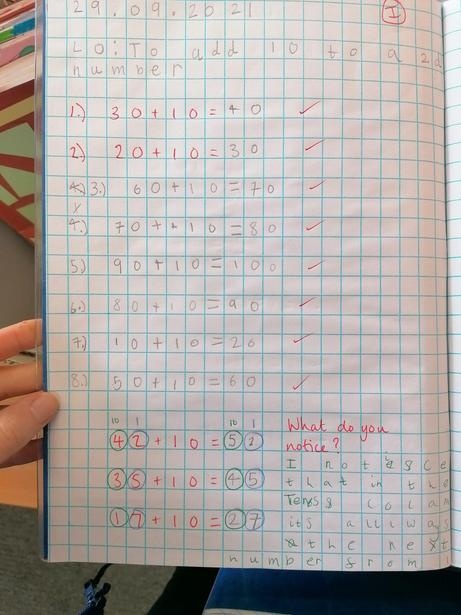 29.09.2021 I
LO: To add 10 to a 2d
number
1.) 30+10=40
2.) 20+10=30
3.) 60+10=70
4.) 70++10=80
5.) 90+10=100
6.) 80+10=90
7.) 10+10=20
8.) 50+10=60
10 1 10 1
42+10=52
35+10=45
17+10=27
What do you
notice?
I notisce
that in the
Tenss colam
its allways
the next
number from